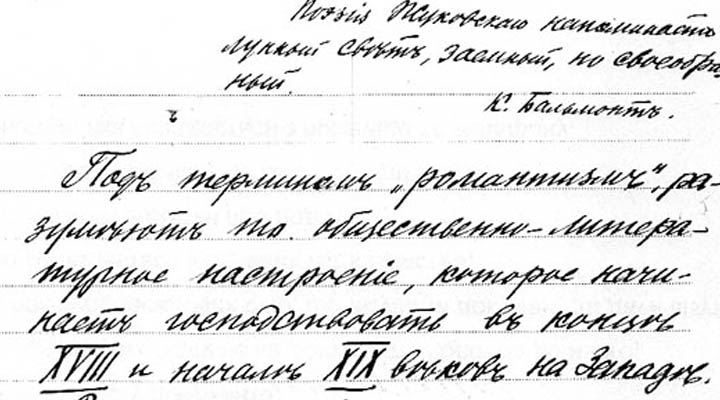 Поэзія Жуковскаго напоминаетъ
лунный свѣтъ, заемный, но своеобра
ный.
К. Бальмонтъ.
Подъ терминомъ „романтизмъ", ра-
зумѣютъ то. общественно-литера-
турное настроеніе, которое начи-
наетъ господствовать въ концѣ
XVIII и началѣ XIX вѣковъ на Западѣ.